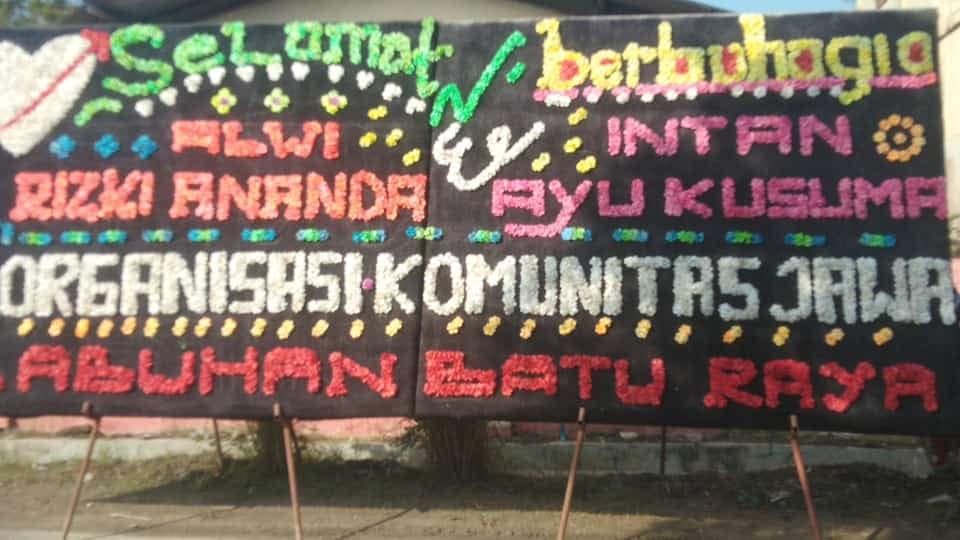 Selamat berbahagia
ALWI & INTAN
RIZKI ANANDA AYU KUSUMA
ORGANISASI KOMUNITAS JAWA
LABUHAN BATU RAYA